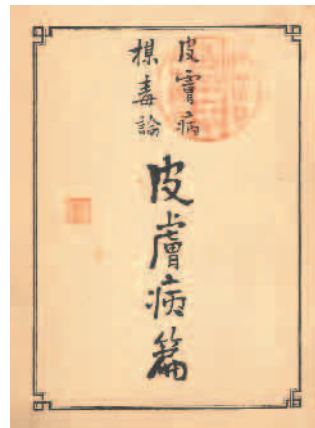 皮膚病
楳毒論
皮膚病篇